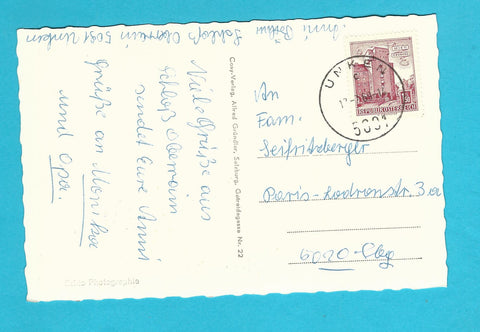 Anni Schloß Oberrain 5091 Unken
Viele Grüße aus
Schloß Oberrain
sendet Eure Anni
Grüße an Monika
und Opa.
Cosy-Verlag, Alfred Gründler, Salzburg, Getreidegasse Nr. 22
Color Photographie
UNKEN
5091
REPUBLIK ÖSTERREICH
An
Fam.
Seifritzberger
Paris-Lodronstr. 3a
5020 Sbg